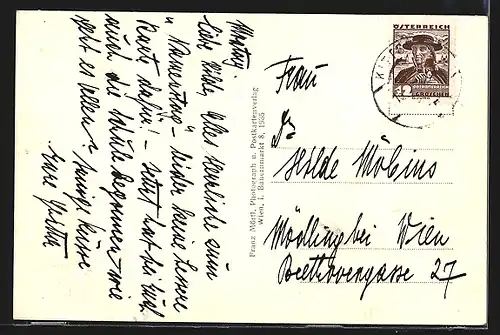 Montag.
Liebe Hilde, Alles Herzliche zum
u Namenstag - leider keine bessere
Karte dafür! - Jetzt hat bei Euch
auch die Schule begonnen - wie
geht es allen? Innigst Küsse
Eure
Franz Mörtl, Photograph u. Postkartenverlag
Wien, I. Bauernmarkt 8, 1935
ÖSTERREICH
12 GROSCHEN
OBERÖSTERREICH
Frau
Dr
Hilde Möbius
Mödling bei Wien
Beethovengasse 27